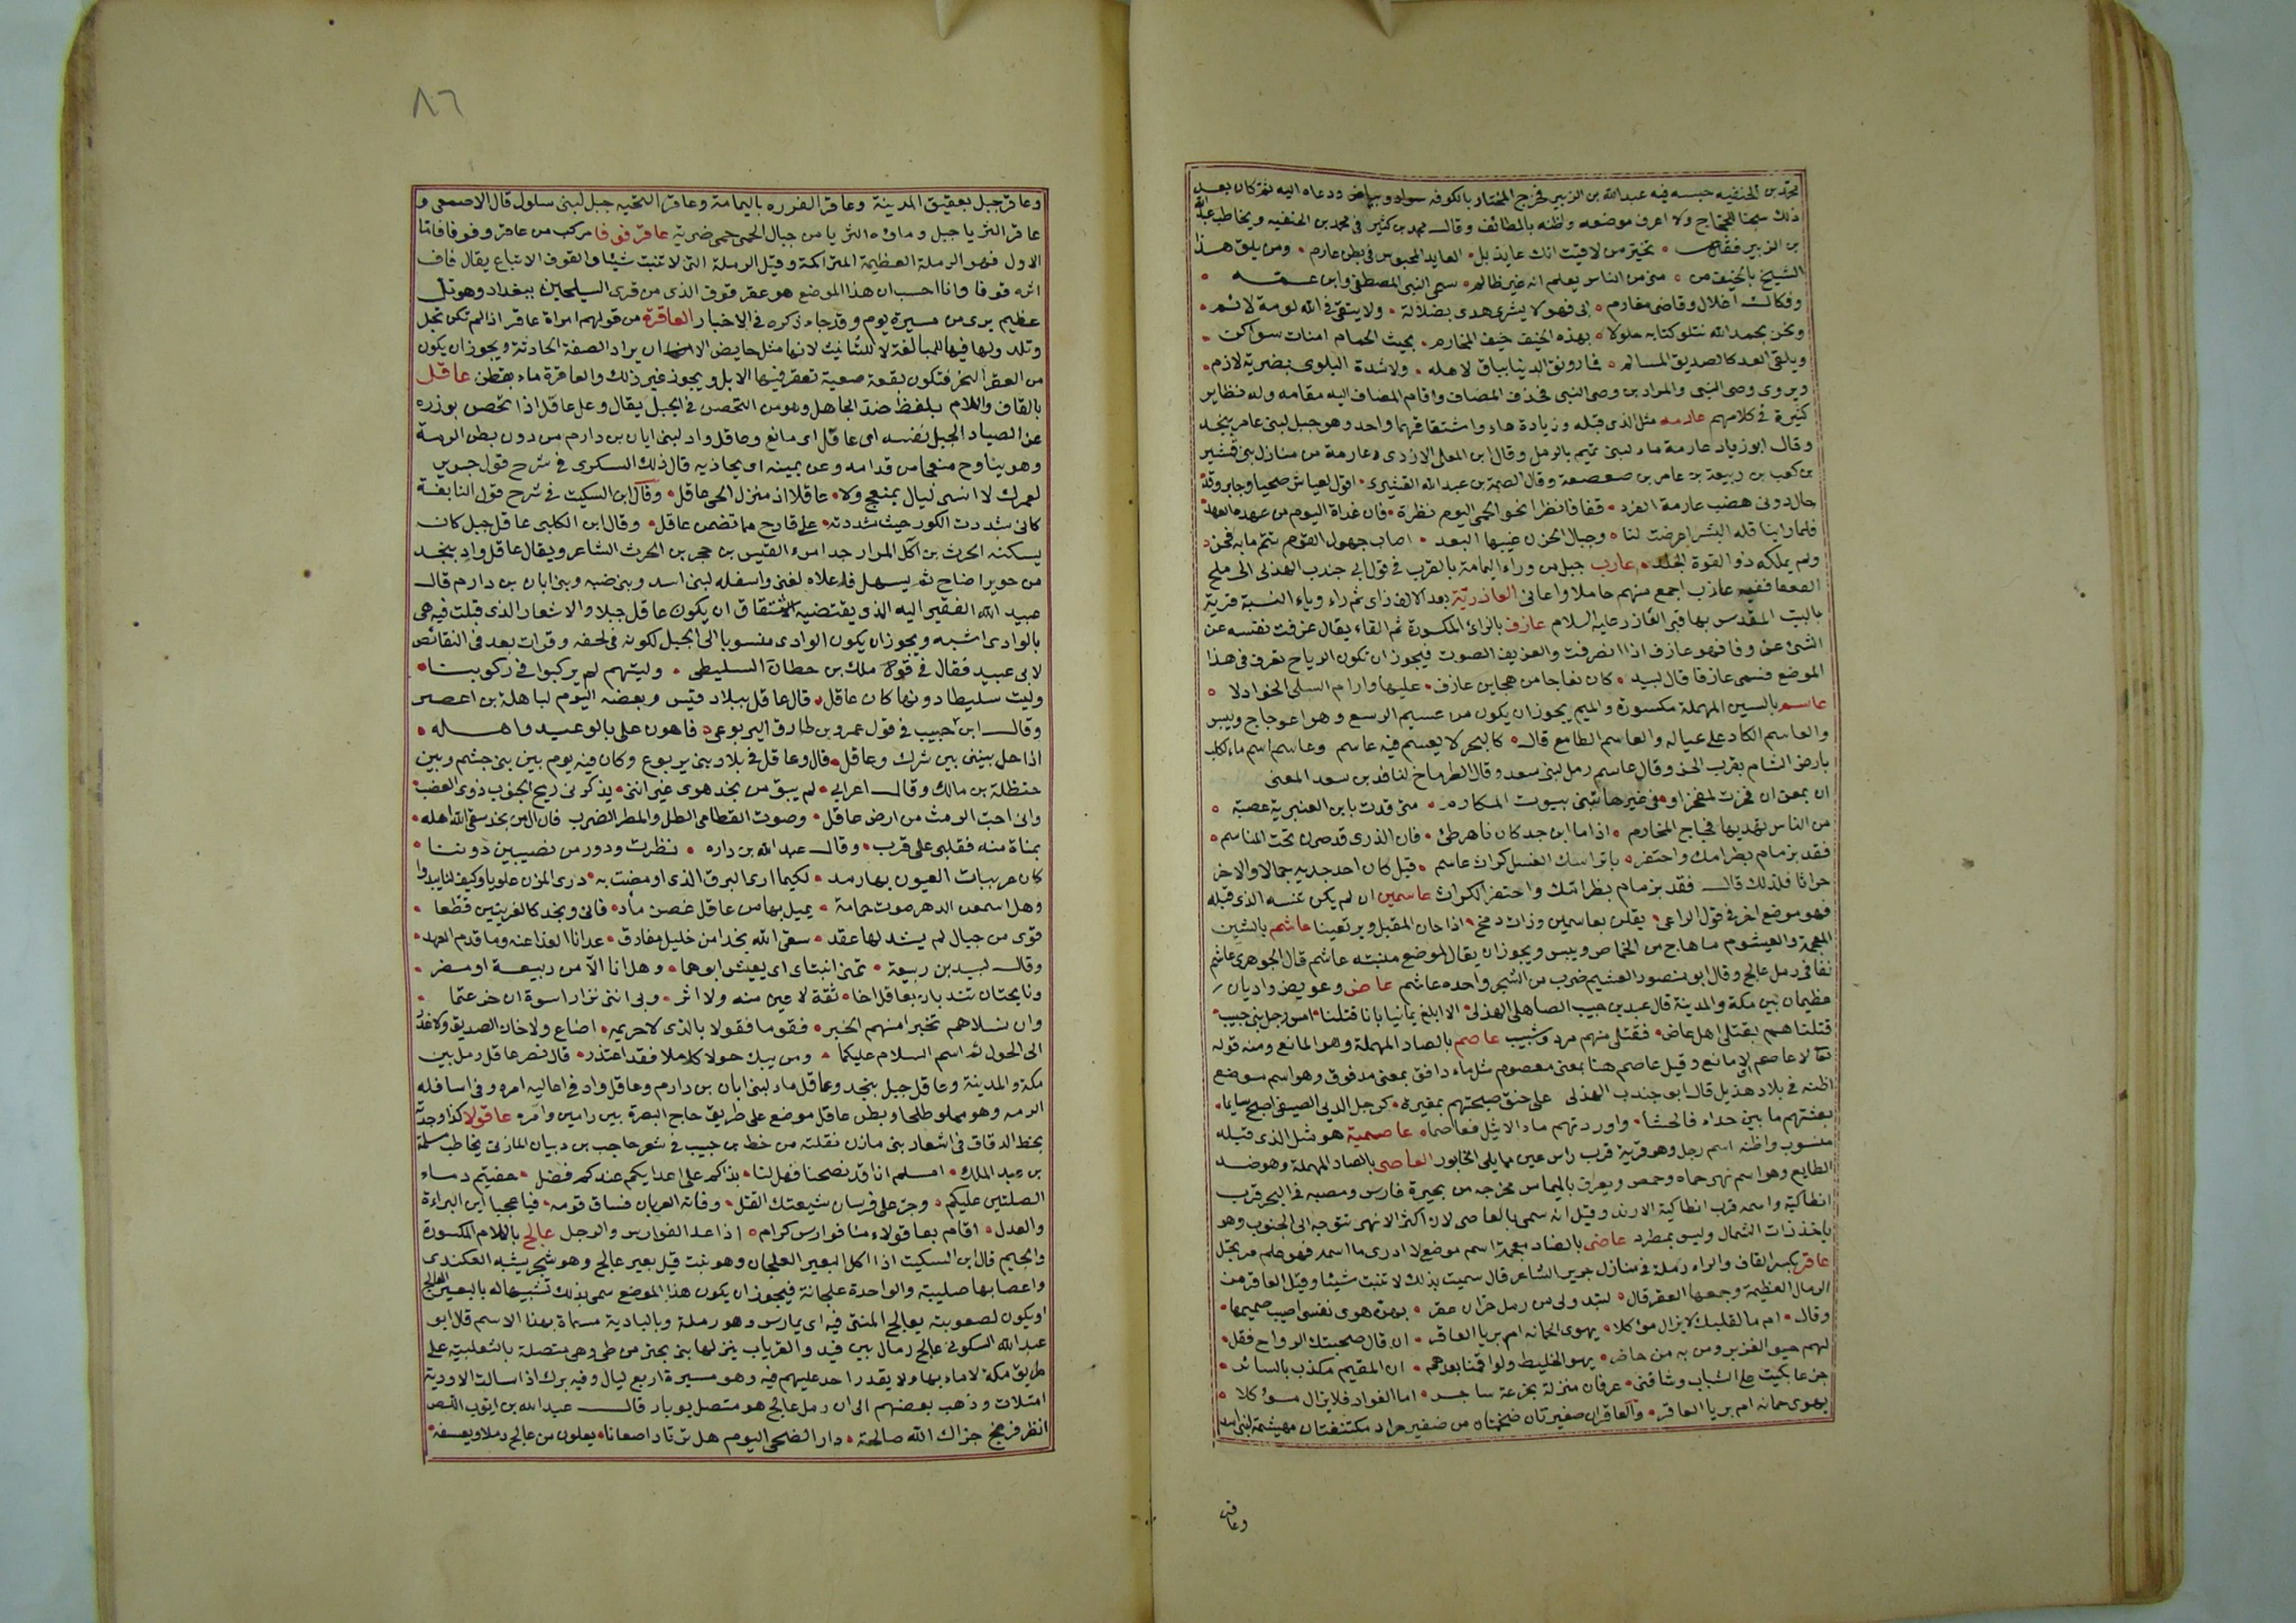 محمد بن الحنفيه حبسه فيه عبد الله بن الزبير فخرج المختار بالكوفه ودعاه اليه ثم كان بعد
ذلك سجنا للحجاج ولا اعرف موضعه واظنه بالطائف وقال محمد بن كثير في محمد بن الحنفيه ويخاطب عبد الله
بن الزبير فقال تخبر من لاقيت انك عايذ بل العايذ المحبوس في بطن عارم ومن يلق هذا
الشيخ بالخيف من منى من الناس يعلم انه غير ظالم سمى النبي المصطفى وابن عمه
وفكاك اغلال وقاضى مغارم ابى فهو لا يشرى هدى بضلالة ولا يتقى في الله لومة لائم
ونحن بحمد الله نتلو كتابه حلولا بهذه الخيف خيف المحارم بحيث الحمام امنات سواكن
ويلقى العدو كالصديق المسالم فما رونق الدنيا بباق لاهله ولا شدة البلوى بضربة لازم
ويروى وصى النبى والمراد بن وصى النبى فحذف المضاف واقام المضاف اليه مقامه وله نظاير
كثيرة في كلامهم عارمه مثل الذى قبله وزيادة هاء واشتقاقهما واحد وهو جبل لبنى عامر بنجد
وقال ابو زياد عارمة ماء لبنى تميم بالرمل وقال ابن المعلى الازدى وعارمة من منازل بنى قشير
بن كعب بن ربيعة بن عامر بن صعصعة وقال الصمة بن عبد الله القشيرى اقول لعياش صحبنا وجابر وقد
حال دونى هضب عارمة الفرد قفا فانظرا نحو الحمى اليوم نظرة فان غداة اليوم من عهده العهد
فلما راينا قلة البشر اعرضت لنا وجبال الحزن غيبها البعد اصاب جهول القوم تتيم ما به فحن
ولم يملكه ذو القوة الجلد عارب جبل من وراء اليمامة بالقرب في قول ابى جندب الهذلى الى ملح
الفعفا ففيه عازب اجمع منهم حاملا واعانى العازرية بعد الالف زاى ثم راء وياء النسبة قرية
بالبيت المقدس بها قبر العازر عليه السلام عازف بالزاى المكسورة ثم الفاء يقال عزفت نفسه عن
الشئ عزوفا فهو عازف اذا انصرفت والعزيف الصوت فيجوز ان تكون الرياح تعزف في هذا
الموضع فسمى عازفا قال لبيد كان نعاجا من هجاين عازف عليها وارام السلى الخواذلا
عاسم بالسين المهملة مكسورة والميم يجوز ان يكون من عسيم الرسغ وهو اعوجاج ويبس
والعاسم الكاد على عياله والعاسم الطامع قال كالبحر لا يعسم فيه عاسم وعاسم اسم ماء لكلب
بارض الشام بقرب الخر وقال عاسم رمل لبنى سعد وقال الطرماح لنافذ بن سعد المعنى
ان بمعن ان فخرت لمفخرا وفى غيرها تبنى بيوت المكارم متى قدت يا بن العنبرية عصبة
من الناس تهديها فجاج المخارم اذا ما ابن جد كان ناهز طئ فان الذرى قد صرن تحت المناسم
فقد بزمام بظر امك واحتفر باير ابيك الفسل كراث عاسم قيل كان احد جديه جمالا والاخر
حراثا فلذلك قال فقد بزمام بظر امك واحتفر الكراث عاسمين ان لم يكن تثنية الذى قبله
فهو موضع اخر في قول الراعى يقلن بعاسمين وذات رمح اذا حان المقيل ويرتعينا عاشم بالشين
المعجمة والعيشوم ما هاج من الحماض ويبس ويجوز ان يقال لموضع منبته عاشم قال الجوهرى عاشم
نقا في رمل عالج وقال ابو منصور العشيم ضرب من الشجر واحده عاشم عاض وعويض واديان
عظيمان بين مكة والمدينة قال عبد بن حبيب الصاهلى الهذلى الا ابلغ يمانينا بانا قتلنا امس رجل بنى حبيب
قتلناهم بقتلى اهل عاض فقتلى منهم مرد وشيب عاصم بالصاد المهملة وهو المانع ومنه قوله
تعالى لا عاصم اى لا مانع وقيل عاصم هنا بمعنى معصوم مثل ماء دافق بمعنى مدفوق وهو اسم موضع
اظنه في بلاد هذيل قال ابو جندب الهذلى على حنق صبحتهم بمغيرة كرجل الدبى الصيفى اصبح سايما
بغيتهم ما بين حداء فالحشا واوردتهم ماء الاثيل فعاصما عاصمية هو مثل الذى قبله
منسوب واظنه اسم رجل وهو قرية قرب راس عين مما يلى الخابور العاصى بالصاد المهملة وهو ضد
الطايع وهو اسم نهر حماه وحمص ويعرف بالميماس مخرجه من بحيرة فارس ومصبه في البحر قرب
انطاكية واسمه قرب انطاكية الارند وقيل انه سمى بالعاصى لان اكثر الانهر تتوجه الى الجنوب وهو
ياخذ ذات الشمال وليس بمطرد عاضى بالضاد معجمة اسم موضع لا ادرى ما اسمه فهو علم مرتجل
عاقر بكسر القاف والراء رملة في منازل جرير الشاعر قال سميت بذلك لا تنبت شيئا وقيل العاقر من
الرمال العظيمة وجمعها العقر قال لتبد ولى من رمل حران عقر بهن هوى نفسى اصيب صميمها
وقال ام ما لقلبك لا يزال موكلا يهوى الجمانه ام بريا العاقر ان قال صحبتك الرواح فقل
لهم حيوا الغزيز ومن به من حاضر يهوى الخليط ولو اقمنا بعدهم ان المقيم مكذب بالسائر
جزعا بكيت على الشباب وشاقنى عرفان منزلة بجزعة ساجر اما الفواد فلا يزال موكلا
بهوى جمانه ام بريا العاقر والعاقران صغيرتان ضخمتان من ضفير جراد مكتنفتان مهيشمة لبنى اسد
وعاقر
٨٦
وعاقر جبل بعقيق المدينة وعاقر الفوره باليمامة وعاقر النخيه جبل لبنى سلول قال الاصمعى و
عاقر الثريا جبل وماؤه الثريا من جبال الحمى حمى ضرية عاقرقوفا مركب من عاقر وقوفا فاما
الاول فهو الرملة العظيمة المتراكمة وقيل الرملة التى لا تنبت شيئا والقوف الاتباع يقال قاف
اثره قوفا وانا احسب ان هذا الموضع هو عقرقوف الذى من قرى السيلحين ببغداد وهو تل
عظيم يرى من مسيرة يوم وقد جاء ذكره في الاخبار العاقرة من قولهم امراة عاقر اذا لم تكن تحبل
وتلد والهاء فيها للمبالغة لا للتانيث لانها مثل حايض الا ان يراد الصفة الحادثة ويجوز ان يكون
من العقر النحر فتكون بقعة صعبة تعقر فيها الابل ويجوز غير ذلك والعاقرة ماء بقطن عاقل
بالقاف واللام بلفظ ضد الجاهل وهو من التحصن في الجبل يقال وعل عاقل اذا تحصن بوزره
عن الصياد الجبل نفسه اى عاقل اى مانع وعاقل واد لبنى ابان بن دارم من دون بطن الرمة
وهو يناوح منعجا من قدامه وعن يمينه اى يحاذيه قال ذلك السكرى في شرح قول جرير
لعمرك لا انسى ليال بمنعج ولا عاقلا اذ منزل الحى عاقل وقال ابن السكيت في شرح قول النابغة
كانى شددت الكور حيث شددته على قارح مما تضمن عاقل وقال ابن الكلبى عاقل جبل كان
يسكنه الحرث بن آكل المرار جد امرء القيس بن حجر بن الحرث الشاعر ويقال عاقل واد بنجد
من حزيز اضاخ ثم يسهل فاعلاه لغنى واسفله لبنى اسد وبنى ضبه وبنى ابان بن دارم قال
عبيد الله الفقير اليه الذى يقتضيه الاشتقاق ان يكون عاقل جبلا والاشعار الذى قيلت فيه هى
بالوادى اشبه ويجوز ان يكون الوادى منسوبا الى الجبل لكونه في لحفه وقرات بعد في النقائض
لابى عبيد فقال في قول ملك بن حطان السليطى وليتهم لم يركبوا في ركوبنا
وليت سليطا دونها كان عاقل قال عاقل ببلاد قيس وبعضه اليوم لباهلة بن اعصر
وقال ابن حبيب في قول عمرو بن طارق اليربوعى فاهون على بالوعيد واهله
اذا حل بيتى بين شرك وعاقل قال وعاقل في بلاد بنى يربوع وكان فيه يوم بين بنى جشم وبين
حنظلة بن مالك وقال اعرابى لم يبق من نجد هوى غير اننى يذكرنى ريح الجنوب ذرى الهضب
وانى احب الرمث من ارض عاقل وصوت القطامى الطل والمطر الضرب فان الن من نجد سقى الله اهله
بمناة منه فقلبى على قرب وقال عبد الله بن داره نظرت ودور من نصيبين دوننا
كان عربيات العيون بها رمد لكيما ارى البرق الذى اومضت به ذرى المزن علويا وكيف لنا يبدو
وهل اسمعن الدهر صوت حمامة يميل بها من عاقل غصن مأد فانى ونجد كالغريقين قطعا
قوى من حبال لم يشد لها عقد سقى الله نجدا من خليل مفارق عدانا العدا عنه وما قدم العهد
وقال لبيد بن ربيعة تمنى ابنتاى ان يعيش ابوهما وهل انا الا من ربيعة او مضر
ونايحتان تندبان بعاقل اخا ثقة لا عين منه ولا اثر وفى ابنى نزار اسوة ان جزعتما
وان تسلاهم تخبرا منهم الخبر فقوما فقولا بالذى لاحريمه اضاع ولا خان الصديق ولا غدر
الى الحول ثم اسم السلام عليكما ومن يبك حولا كاملا فقد اعتذر قال نصر عاقل رمل بين
مكة والمدينة وعاقل جبل بنجد وعاقل ماء لبنى ابان بن دارم وعاقل واد في اعاليه امره وفى اسافله
الرمه وهو مملو طلحا وبطن عاقل موضع على طريق حاج البصرة بين رامين وامره عاقولا كذا وجدته
بخط الدقاق في اشعار بنى مازن نقلته من خط بن حبيب في شعر حاجب بن دبيان المازنى يخاطب مسلمة
بن عبد الملك امسلم انا قد نصحنا فهل لنا بذاكم على اعدايكم عندكم فضل حقنتم دماء
الصلتين عليكم وجر على فرسان شيعتك القتل وفاته العريان فساق قومه فيا عجبا اين البراءة
والعدل اقام بعاقولاء منا فوارس كرام اذا عد الفوارس والرجل عالج باللام المكسورة
والجيم قال ابن السكيت اذا اكل البعير العلجان وهو نبت قيل بعير عالج وهو شجر يشبه العكندى
واغصانها صليبة والواحدة علجانة فيجوز ان يكون هذا الموضع سمى بذلك تشبيها له بالبعير العالج
او يكون لصعوبته يعالج المشى فيه اى يمارس وهو رملة وبالبادية مسماة بهذا الاسم قال ابو
عبد الله السكونى عالج رمال بين فيد والقريات ينزلها بنى بحتر من طى وهى متصلة بالثعلبية على
طريق مكة لا ماء بها ولا يقدر احد عليهم فيه وهو مسيرة اربع ليال وفيه برك اذا سالت الاودية
امتلات وذهب بعضهم الى ان رمل عالج هو متصل بوبار قال عبد الله بن ايوب اللص
انظر فرنج جزاك الله صالحة دار الضحى اليوم هل ترتاد اصعانا يعلون من عالج رملا ويعسفه